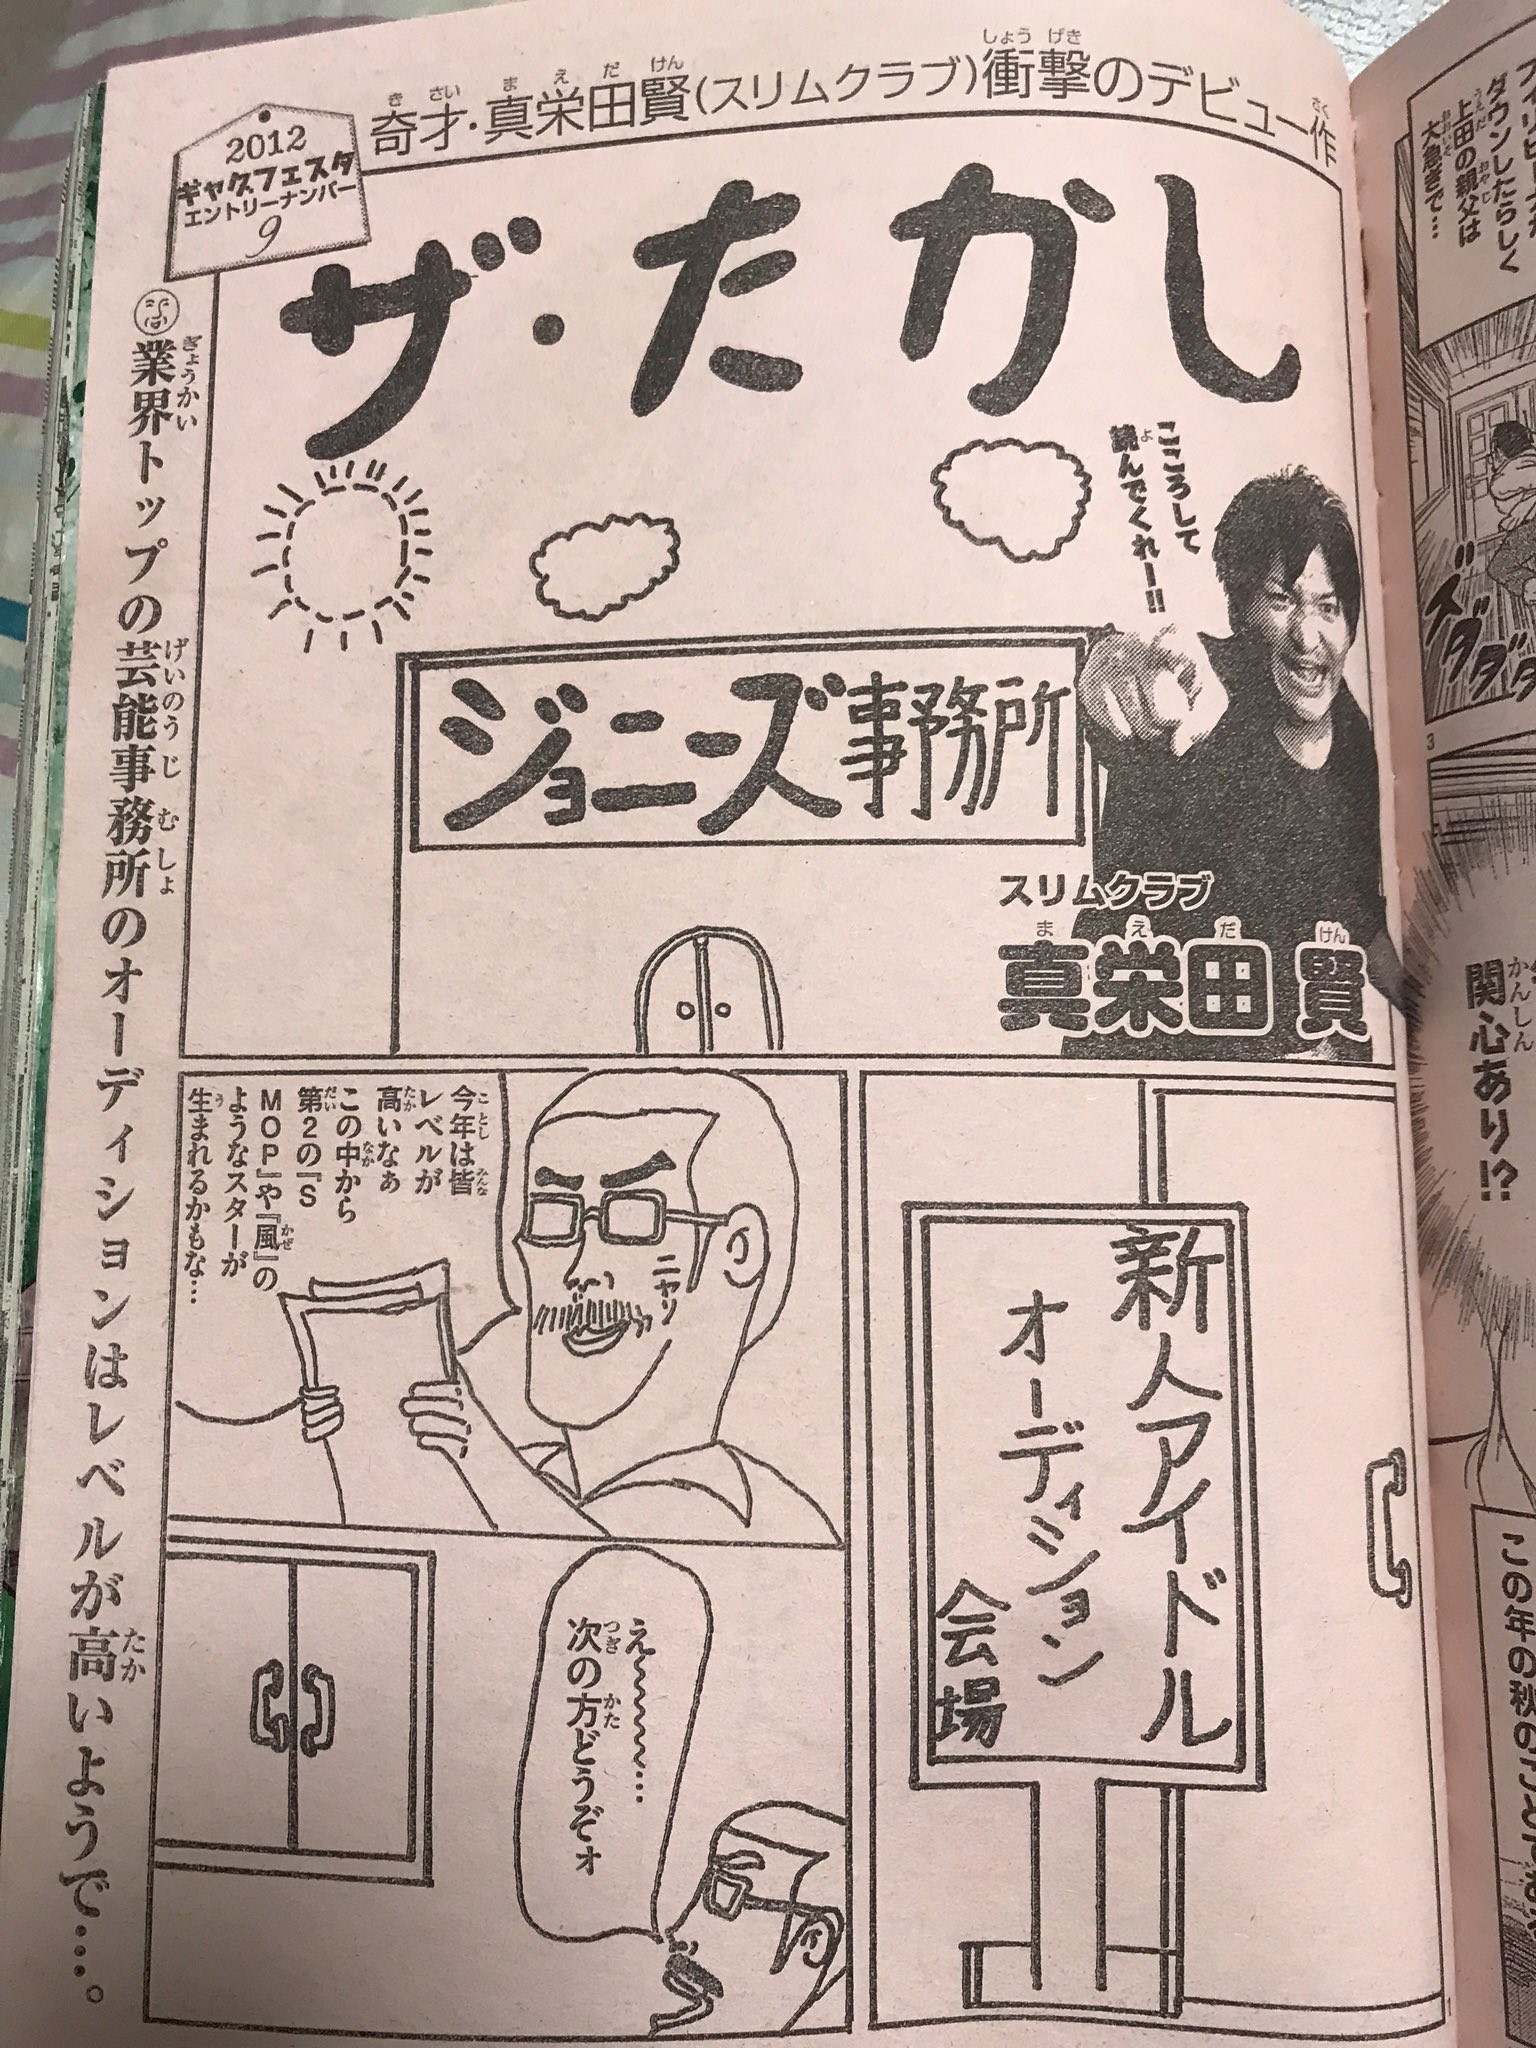 奇才・真栄田賢(スリムクラブ)衝撃のデビュー作
2012
ギャグフェスタ
エントリーナンバー
9
ザ・たかし
こころして
読んでくれー!!
ジョニーズ事務所
スリムクラブ
真栄田 賢
業界トップの芸能事務所のオーディションはレベルが高いようで…。
新人アイドル
オーディション
会場
今年は皆
レベルが
高いなぁ
この中から
第2の『S
MOP』や『風』の
ようなスターが
生まれるかもな…
ニヤリ
え〜〜〜〜…
次の方どうぞォ
1
ダウンしたらしく
上田の親父は
大急ぎで…
ダダダ
3
関心あり!?